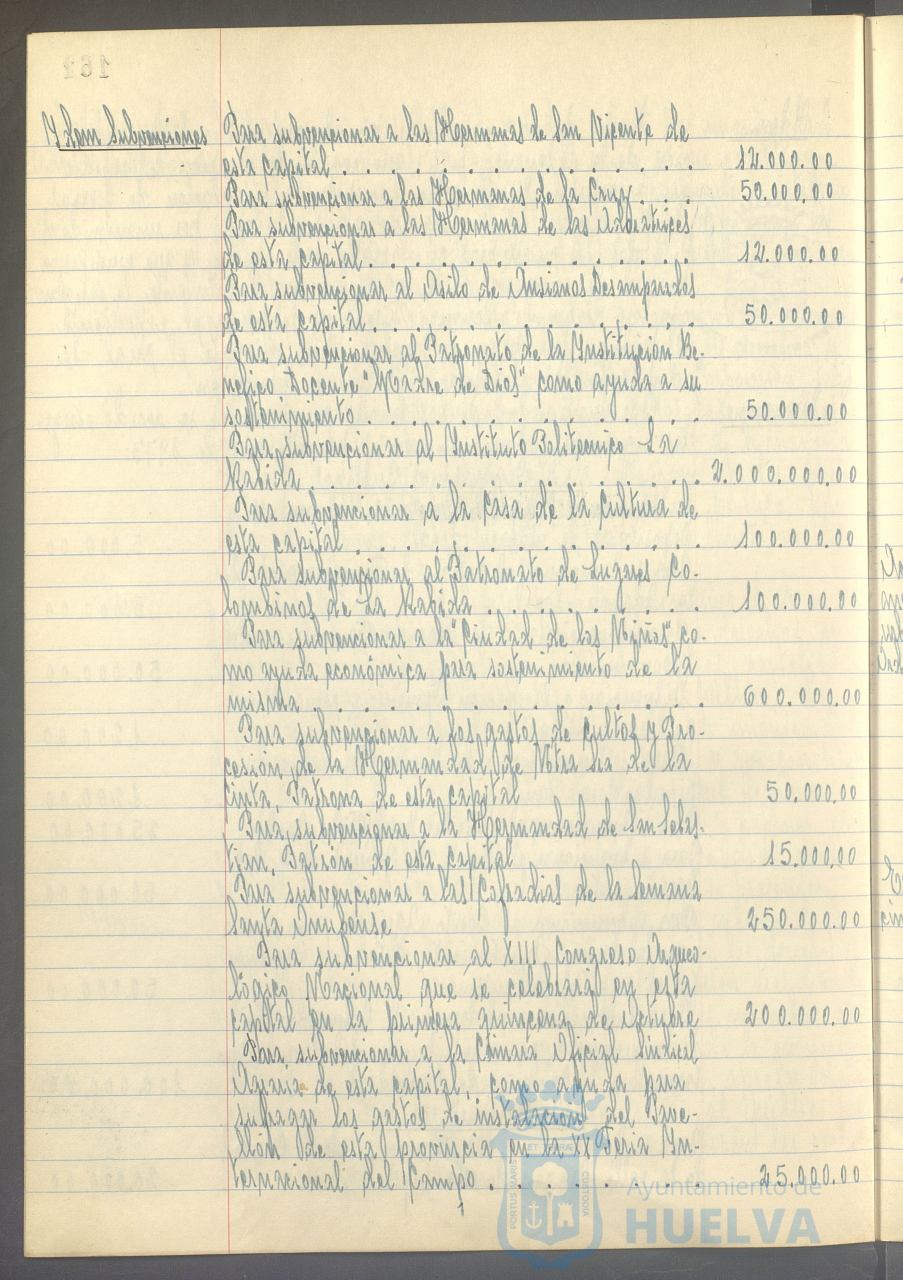 162
Ydem Subvenciones
Para subvencionar a las Hermanas de San Vicente de
esta capital . . . . . . . . . . . . . . . . 12.000.00
Para subvencionar a las Hermanas de la Cruz . . . . 50.000,00
Para subvencionar a las Hermanas de las Adoratrices
de esta capital . . . . . . . . . . . . . . . 12.000.00
Para subvencionar al Asilo de Ansianos Desamparados
de esta capital . . . . . . . . . . . . . . . 50.000.00
Para subvencionar al Patronato de la Institución Be-
nefico Docente "Madre de Dios" como ayuda a su
sostenimiento . . . . . . . . . . . . . . . 50.000.00
Para subvencionar al Instituto Politecnico La
Rabida . . . . . . . . . . . . . . . . . . 2.000.000,00
Para subvencionar a la Casa de la Cultura de
esta capital . . . . . . . . . . . . . . . . 100.000.00
Para subvencionar al Patronato de Lugares Co-
lombinos de La Rabida . . . . . . . . . . 100.000.00
Para subvencionar a la "Ciudad de los Niños" co-
mo ayuda económica para sostenimiento de la
misma . . . . . . . . . . . . . . . . . . 600.000,00
Para subvencionar a los gastos de Cultos y Pro-
cesión de la Hermandad de Ntra Sra de la
Cinta, Patrona de esta capital 50.000,00
Para subvencionar a la Hermandad de San Sebas-
tian, Patrón de esta capital 15.000,00
Para subvencionar a las Cofradias de la Semana
Santa Onubense 250.000.00
Para subvencionar al XIII Congreso Arqueo-
lógico Nacional que se celebrará en esta
capital en la primera quincena de Octubre 200.000.00
Para subvencionar a la Cámara Oficial Sindical
Agraria de esta capital, como ayuda para
sufragar los gastos de instalación del Pave-
llón de esta provincia en la XX Feria In-
ternacional del Campo . . . . . . . . . 25.000.00
PORTUS MARIS ET TERRAE CUSTODIA
Ayuntamiento de
HUELVA